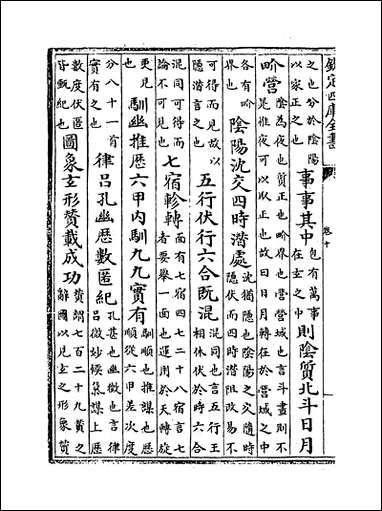 欽定四庫全書
卷十
之也分於陰陽
以家正之也
事事其中
包有萬事
在玄之中
則陰質北斗日月
畍營
陰為夜也質正也畍界也營營域也言斗晝則不
是推夜可以取正也故曰日月轉在於營域之中
各有畍
界也
陰陽沈交四時潛處
沈猶隱也陰陽之交隨時
隱伏而四時潛阻改易不
可得而見故以
隱潛言之也
五行伏行六合既混
混同也言五行王
相休伏於時六合
混同可得而
論不可見也
七宿軫轉
面有七宿四七二十八宿言七
者要舉一面也運用於天轉旋
更見
也
馴幽推歷六甲內馴九九實有
馴順也推謀也歷
順從六甲差次度
分八十一首
實有之也
律呂孔幽歷數匿紀
孔甚也幽微也言律
呂微妙候氣謀上歷
數度伏匿
皆甄紀也
圖象玄形贊載成功
贊謂七百二十九贊之
辭圖以見玄之形象贊